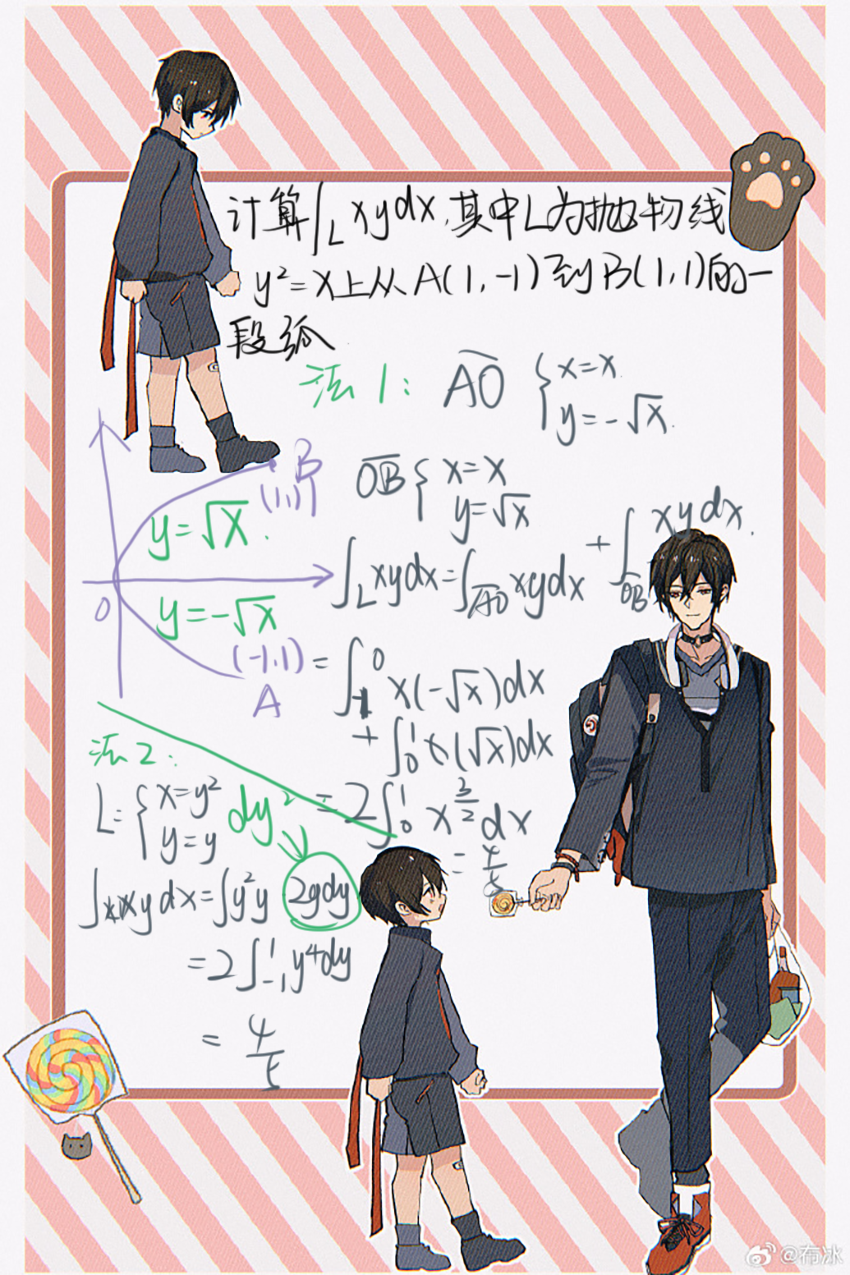 计算∫_L xydx,其中L为抛物线
y²=x上从A(1,-1)到B(1,1)的一
段弧
法1: A͡O { x=x
y=-√x.
B
(1,1)
O͡B { x=x
y=√x
y=√x.
∫_L xydx=∫_A͡O xydx + ∫_O͡B xydx.
0
y=-√x
(-1,1)
A
=∫₁⁰ x(-√x)dx
+∫₀¹ x(√x)dx
=2∫₀¹ x^(3/2) dx
=4/5
法2:
L={ x=y²
y=y
dy²
∫xydx=∫y²y 2ydy
=2∫₋₁¹ y⁴dy
=4/5
@布冰